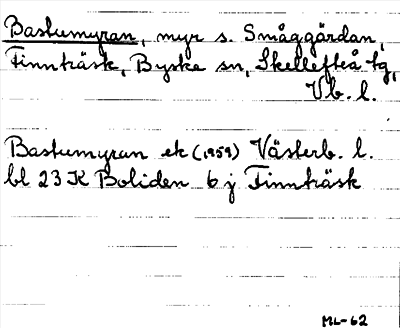 Bastumyran, myr s. Småggårdan,
Finnträsk, Byske sn, Skellefteå tg,
Vb. l.
Bastumyran ek (1959) Västerb. l.
bl 23 K Boliden 6 j Finnträsk
ML-62